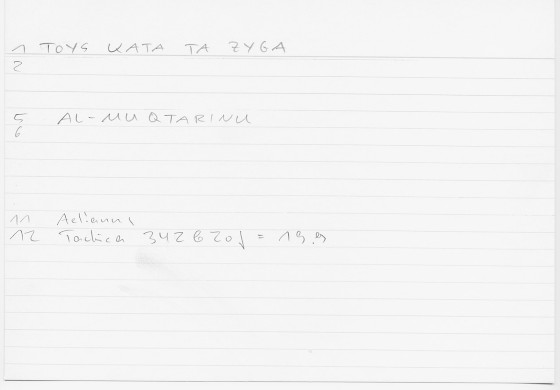 1 TOYS KATA TA ZYGA
2
5 AL-MUQTARINU
6
11 Aelianus
12 Tactica 342 B 20f = 19.9